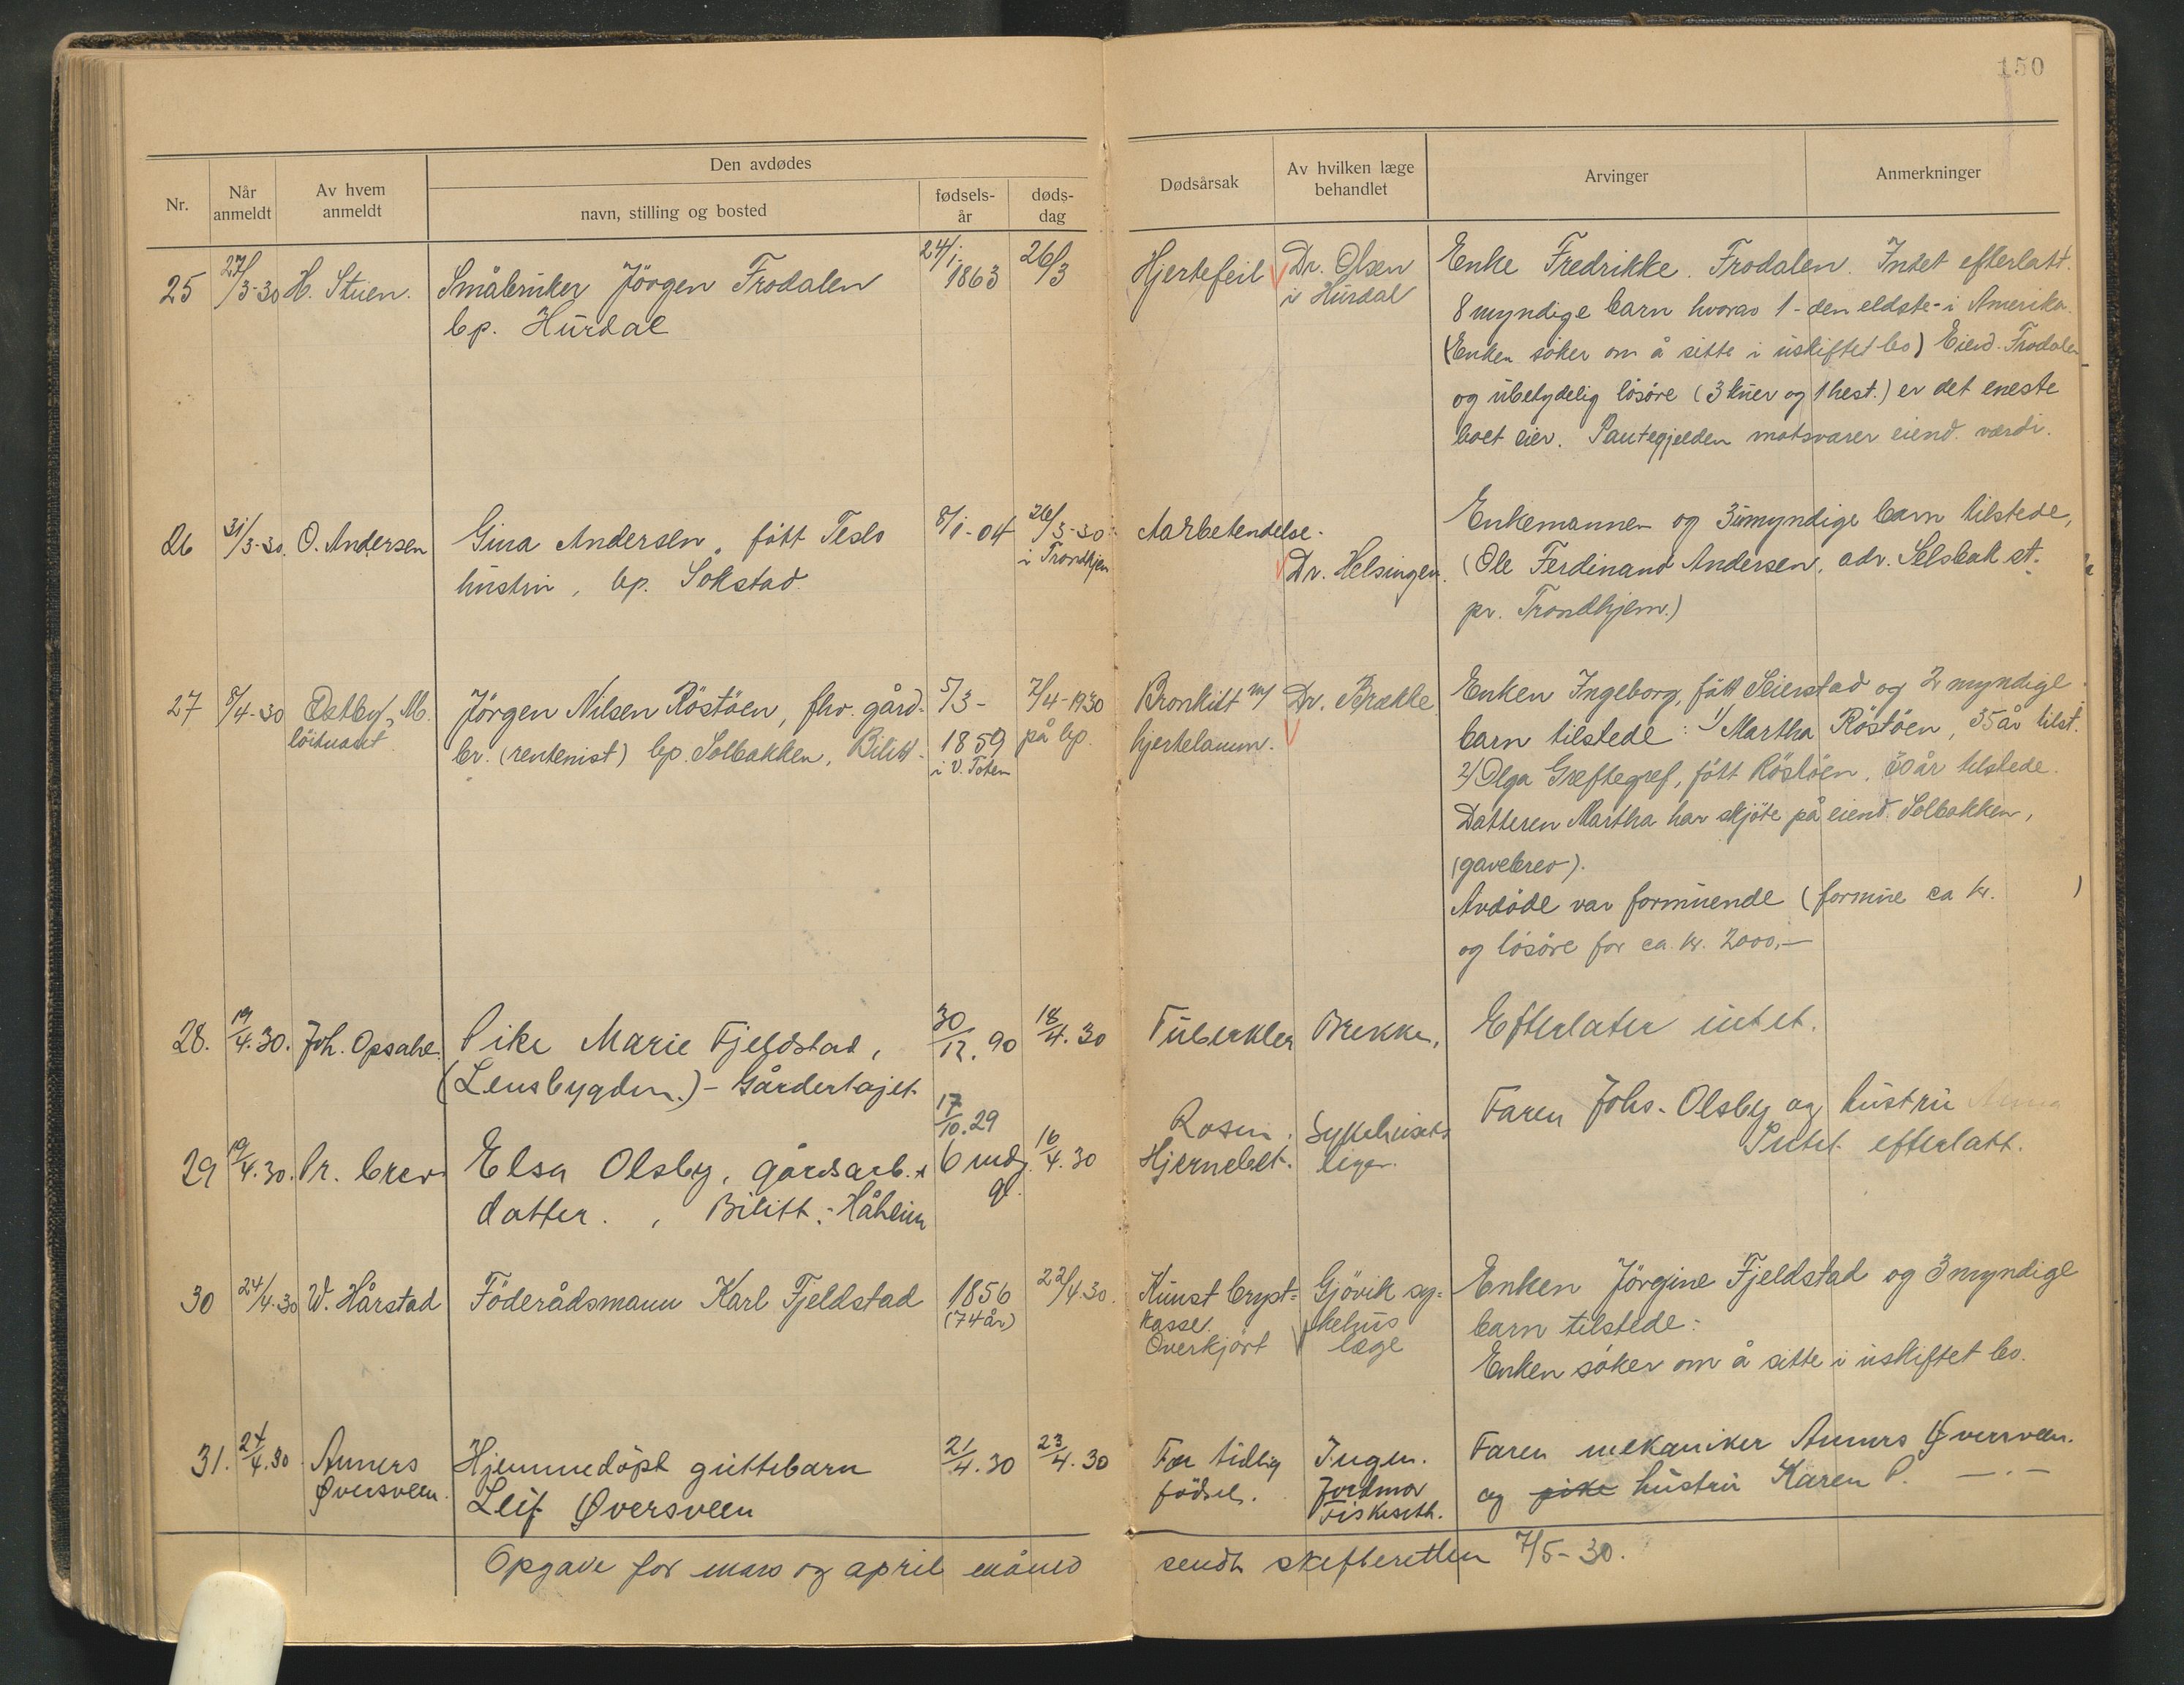 150
Nr.
Når anmeldt
Av hvem anmeldt
Den avdødes
navn, stilling og bosted
fødsels-år
døds-dag
Dødsårsak
Av hvilken læge behandlet
Arvinger
Anmerkninger
25 27/3-30 H. Stuen. Småbruker Jörgen Frodalen 24/1-1863 26/3 Hjertefeil Dr. Olsen Enke Fredrikke Frodalen. Intet efterlatt.
bp. Hurdal i Hurdal 8 myndige barn hvorav 1 - den eldste - i Amerika.
(Enken söker om å sitte i uskiftet bo) Eiend. Frodalen
og ubetydelig lösöre (3 kuer og 1 hest.) er det eneste
boet eier. Pantegjelden motsvarer eiend. værdi.
26 31/3-30. O. Andersen Gina Andersen, fött Teslo 8/1-04 26/3-30 Aarbetendelse. Enkemannen og 3 umyndige barn tilstede,
hustru, bp. Sokstad i Trondhjem Dr. Helsingen. (Ole Ferdinand Andersen, adr. Selsbak st.
pr. Trondhjem.)
27 8/4-30 Østby, M. Jörgen Nilsen Röstöen, fhv. gård- 5/3- 7/4-1930 Bronkitt m/ Dr. Brække Enken Ingeborg, fött Seierstad og 2 myndige
löitnant br. (rentenist) bp. Solbakken, Bilitt. 1859 på bp. hjertelamm. barn tilstede: 1/ Martha Röstöen, 35 år tilst.
i V. Toten 2/ Olga Greftegref, fött Röstöen, 30 år tilstede.
Datteren Martha har skjöte på eiend. Solbakken,
(gavebrev).
Avdöde var formuende (formue ca kr. )
og lösöre for ca. kr. 2000,-
28. 19/4.30. Joh. Opsahl. Pike Marie Fjeldstad, 30/12.90 18/4.30 Tuberkler Brekke, Efterlater intet.
(Lensbygden.) - Gårdertajet.
29 19/4.30. Pr. brev Elsa Olsby, gårdsarb.s 17/10.29 16/4.30 Rosen. Sykehusets Faren Johs. Olsby og hustru Anna
datter., Bilitt: Håheim 6 mdr. gl. Hjernebet. leger. Intet efterlatt.
30 24/4.30 W. Hårstad Föderådsmann Karl Fjeldstad 1856 22/4.30. Knust bryst= Gjövik sy= Enken Jörgine Fjeldstad og 3 myndige
(74 år) kasse. kehus barn tilstede:
Overkjört læge Enken söker om å sitte i uskiftet bo.
31. 24/4.30 Anners Hjemmedöpt guttebarn 21/4.30 23/4.30 For tidlig Ingen. Faren mekaniker Anners Øversveen.
Øversveen. Leif Øversveen födsel. Jordmor og pike hustru Karen P. -.-
Fiskeseth.
Opgave for mars og april måned sendt skifteretten 7/5-30.